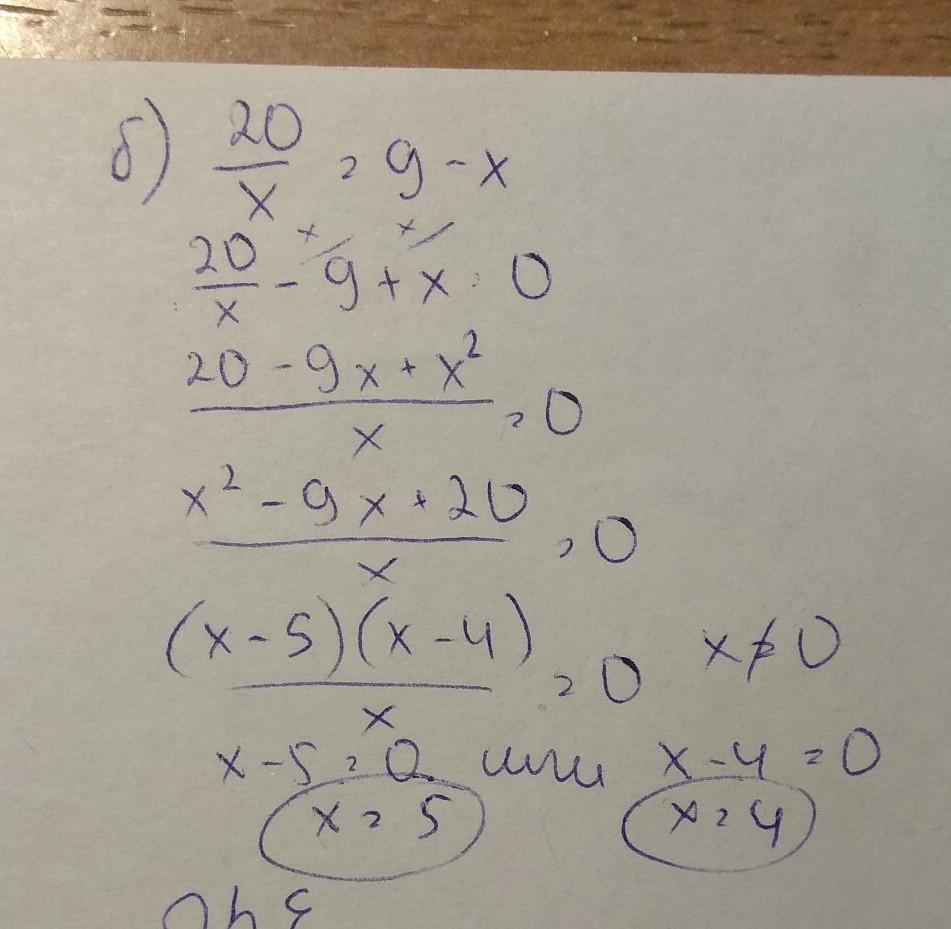 б) 20/x = 9 - x
20/x - 9 (x/ + x (x/ = 0
(20 - 9x + x²)/x = 0
(x² - 9x + 20)/x = 0
(x-5)(x-4)/x = 0 x≠0
x-5=0 или x-4=0
x=5 x=4